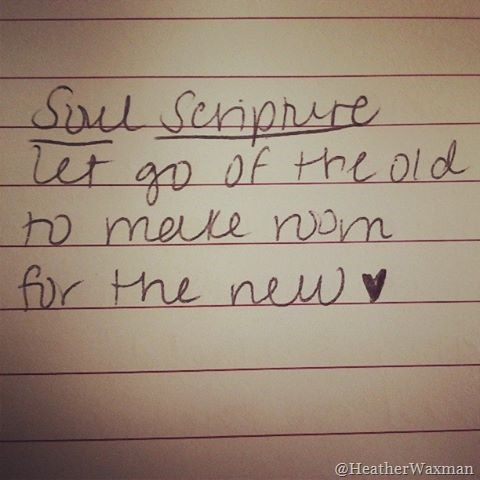 Soul Scripture
let go of the old
to make room
for the new ♥
@HeatherWaxman